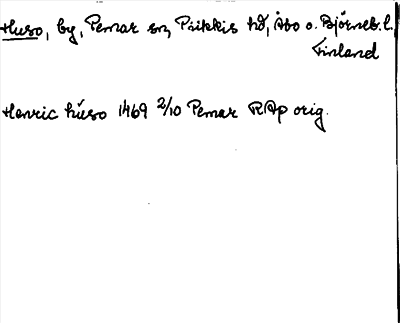 Huso, by, Pemar sn, Piikkis hd, Åbo o. Björneb. l.,
Finland
Henric húso 1469 2/10 Pemar RAp orig.